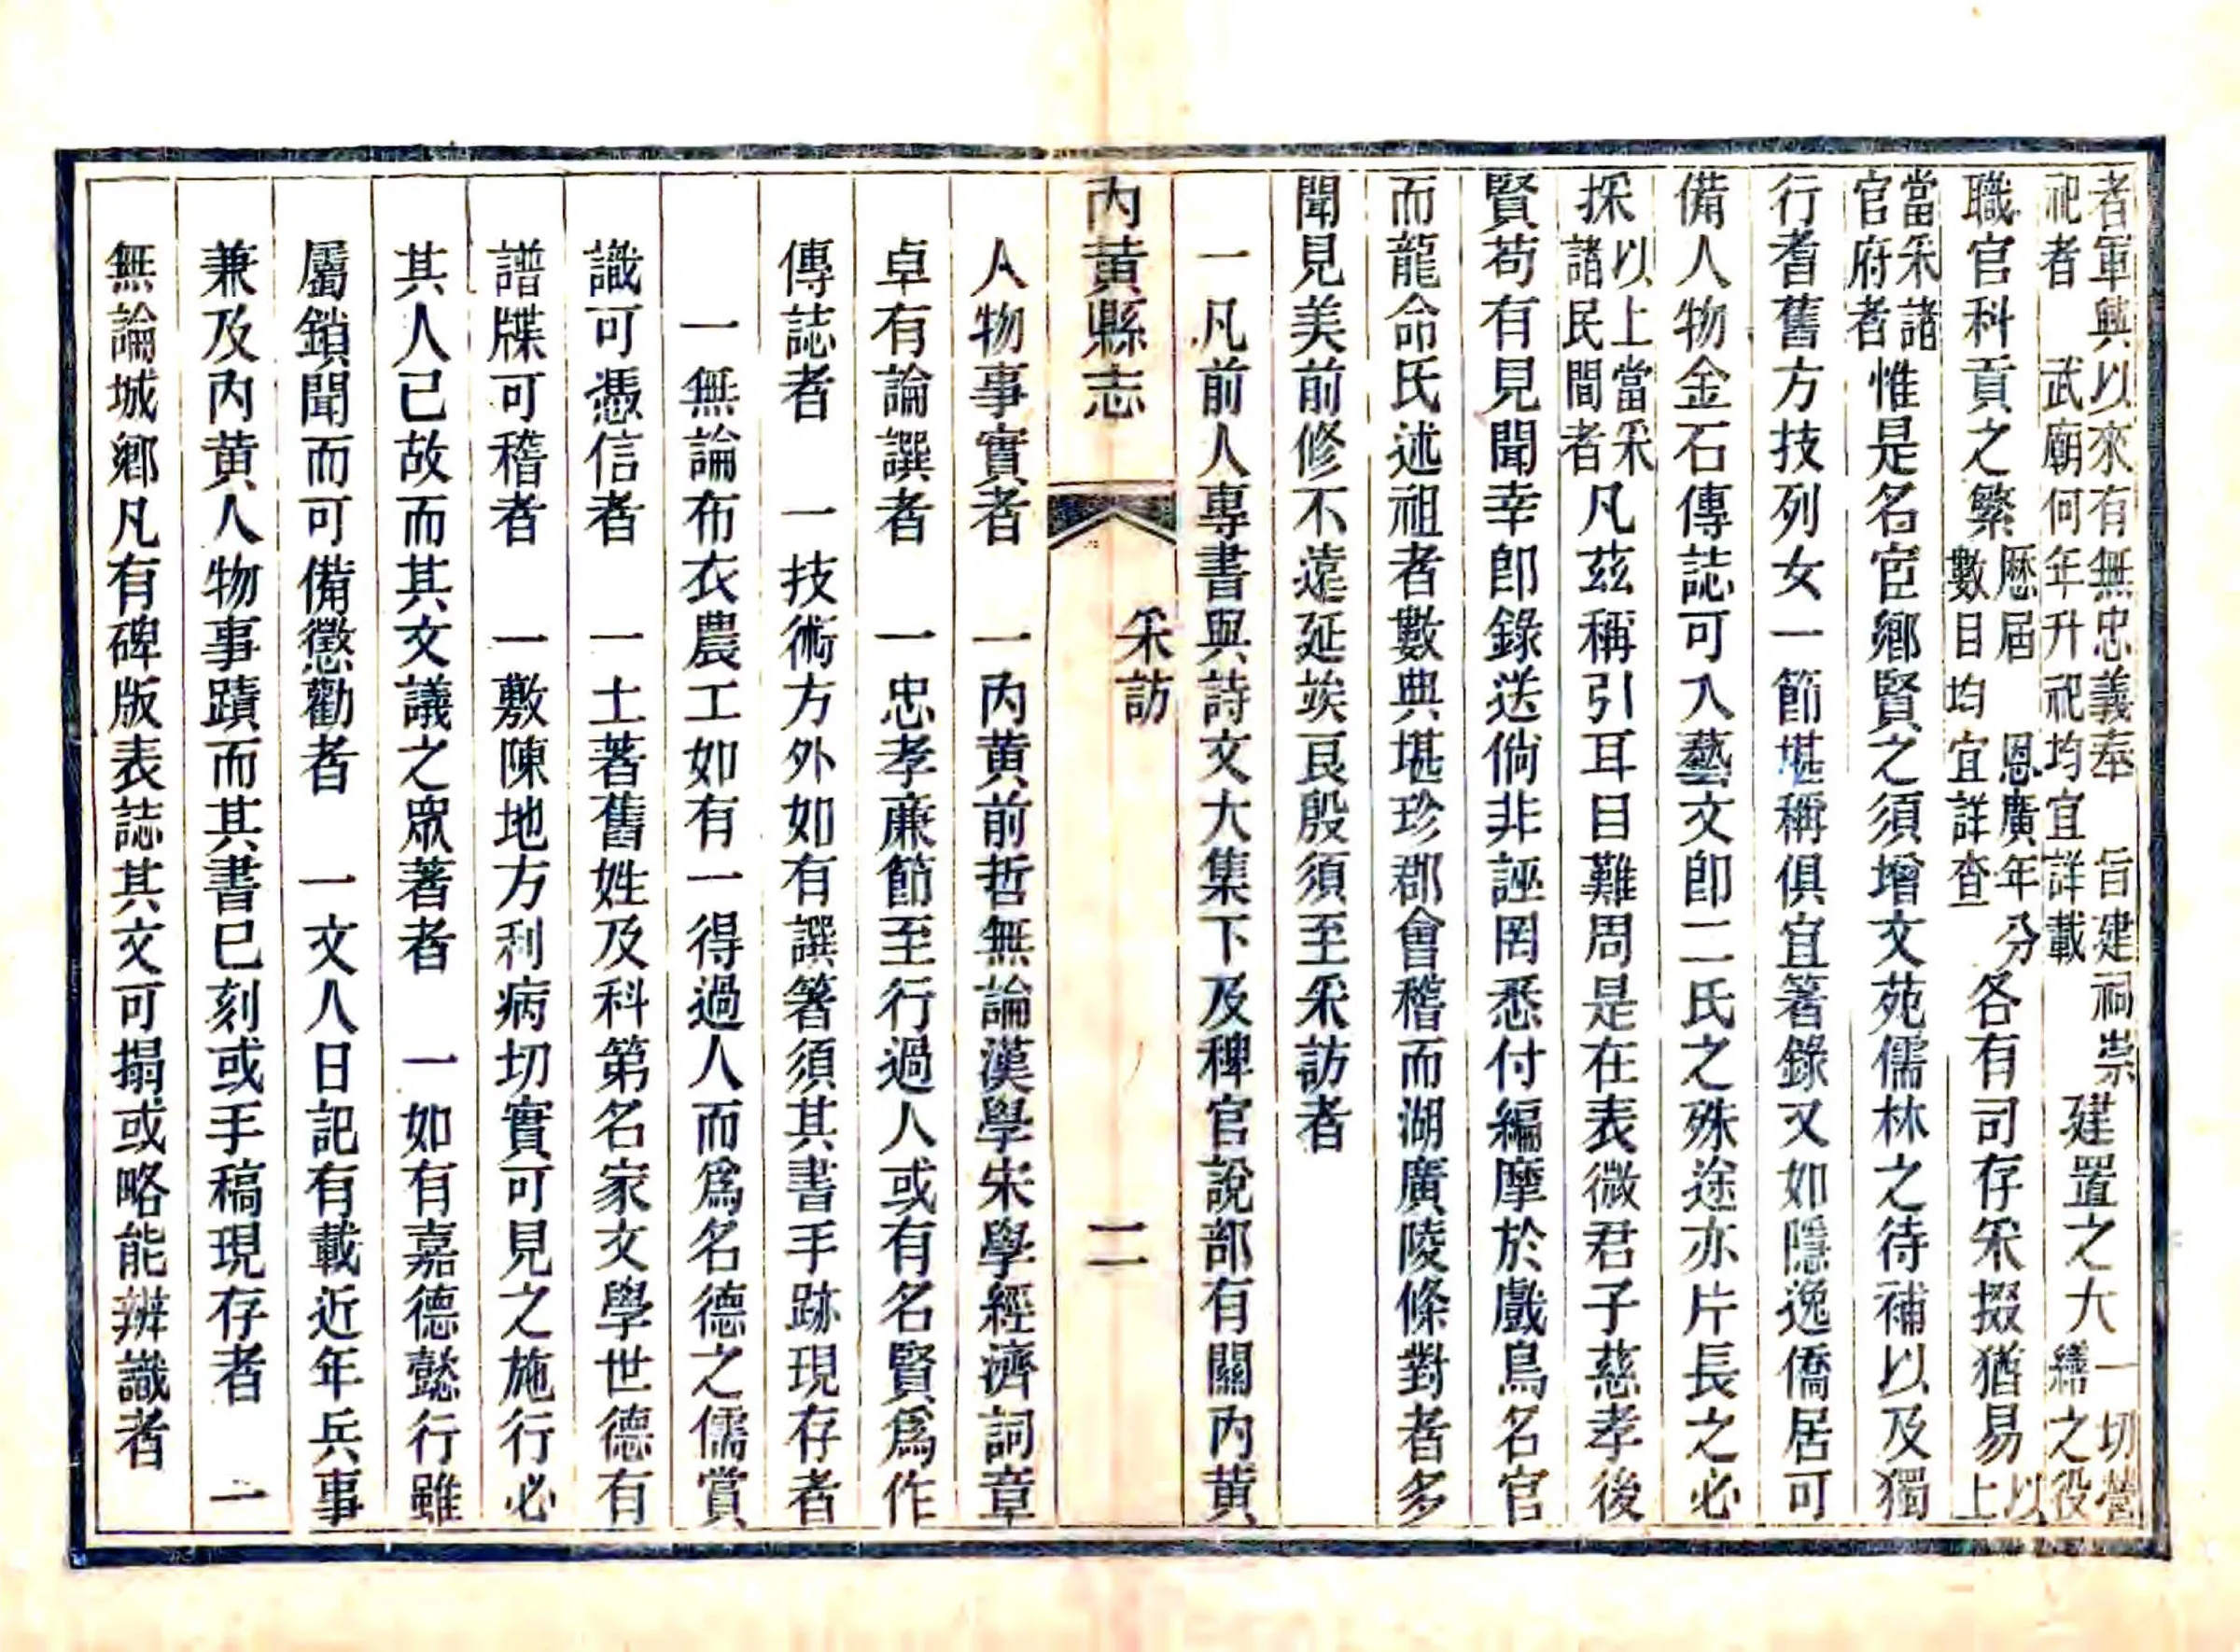 者軍興以來有無忠義奉　旨建祠崇
祀者　武廟何年升祀均宜詳載
建置之大
一切營
繕之役
職官科貢之繁
歷屆　恩廣年分
數目均宜詳查
各有司存采掇猶易
以
上
當采諸
官府者
惟是名宦鄉賢之須增文苑儒林之待補以及獨
行耆舊方技列女一節堪稱俱宜著錄又如隱逸僑居可
備人物金石傳誌可入藝文卽二氏之殊途亦片長之必
採
以上當采
諸民間者
凡茲稱引耳目難周是在表微君子慈孝後
賢苟有見聞幸卽錄送倘非誣罔悉付編摩於戲鳥名官
而龍命氏述祖者數典堪珍郡會稽而湖廣陵條對者多
聞見美前修不遠延竢良殷須至采訪者
一凡前人專書與詩文大集下及稗官說部有關內黃
內黃縣志
采訪
二
人物事實者　一內黃前哲無論漢學宋學經濟詞章
卓有論譔者　一忠孝廉節至行過人或有名賢爲作
傳誌者　一技術方外如有譔箸須其書手跡現存者
一無論布衣農工如有一得過人而爲名德之儒賞
識可憑信者　一土著舊姓及科第名家文學世德有
譜牒可稽者　一敷陳地方利病切實可見之施行必
其人已故而其文議之眾著者　一如有嘉德懿行雖
屬鎖聞而可備懲勸者　一文人日記有載近年兵事
兼及內黃人物事蹟而其書已刻或手稿現存者　一
無論城鄉凡有碑版表誌其文可搨或略能辨識者